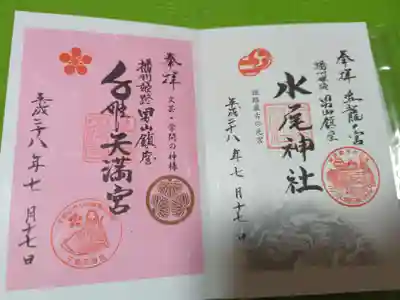 奉拝 立龍ノ宮
播州姫路 男山鎮座
水尾神社
姫路最古の元宮
平成二十八年七月十七日
奉拝
文芸・学問の神様
播州姫路 男山鎮座
千姫天満宮
平成二十八年七月十七日